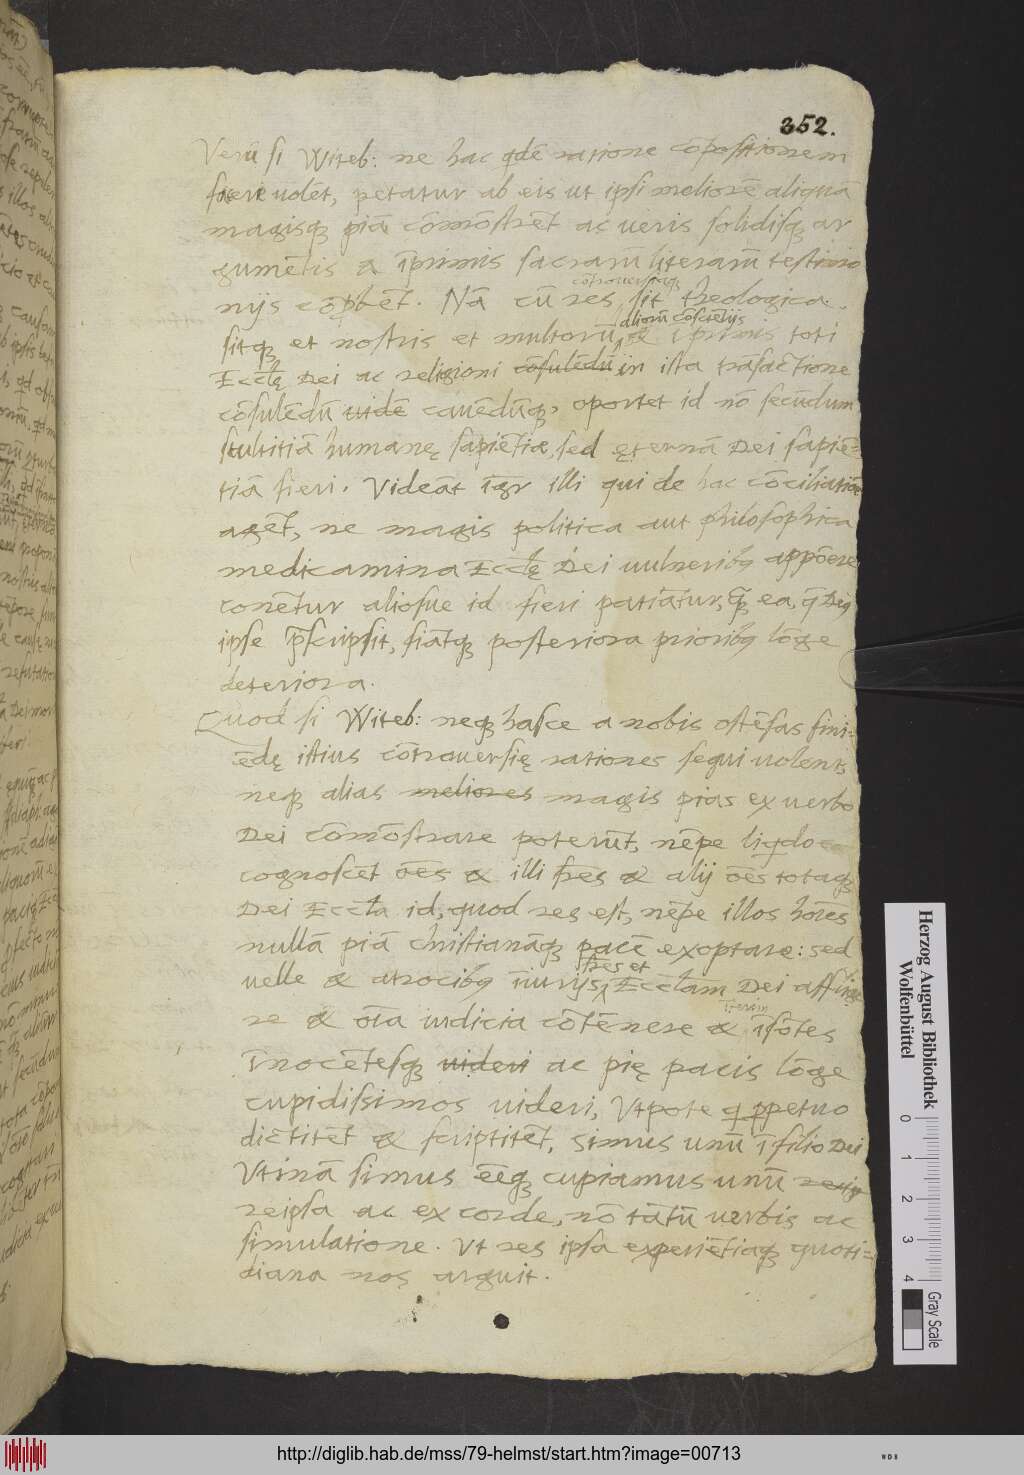 352.
Verū si Witeb: ne hac qdē ratione cōpositionem
fieri uolēt, petatur ab eis ut ipsi meliorē aliquā
magisq; piā cōmōstrēt ac ueris solidisq; ar
gumētis & īprimis sacrarū literarū testimo
nijs cōprobēt. Nā cū res controuersaq; sit theologica
sitq; et nostris et multorū aliorū cōsciētijs & īprimis toti
Eccłę Dei ac religioni cōsulēdū in ista trāsactione
cōsulēdū uidē cauēdūq;, oportet id nō secūdum
stultitiā humanę sapiētiæ, sed ęternā Dei sapiē=
tiā fieri. Videāt igr illi qui de hac cōciliatiōe
agēt, ne magis politica aut philosophica
medicamina Eccłę Dei uulneribq appōere
conētur aliosue id fieri patiātur, q̄ ea, q̄ Dēq
ipse p̄scripsit, fiātq; posteriora prioribq lōge
deteriora.
Quod si Witeb: neq; hasce a nobis ostēsas fini=
ēdę istius cōtrouersię rationes sequi uolent,
neq; alias meliores magis pias ex uerbo
Dei cōmōstrare poterūt, nēpe liqdo
cognoscēt oēs & illi frēs & alij oēs totaq;
Dei Eccła id, quod res est, nēpe illos hoīes
nullā piā christianāq; pacē exoptare: sed
uelle & atrocibq iniurijs frēs et Eccłam Dei affice
re & oīa iudicia cōtēnere & iterim īsōtes
īnocētesq; uideri ac pię pacis lōge
cupidissimos uideri, Vtpote q ppetuo
dictitēt & scriptitēt, simus unū ī filio Dei
Vtinā simus eēq; cupiamus unū reiq
reipsa ac ex corde, nō tātū uerbis ac
simulatione. Vt res ipsa experiētiaq; quoti=
diana nos arguit.
Herzog August Bibliothek
Wolfenbüttel
0 1 2 3 4
Gray Scale
http://diglib.hab.de/mss/79-helmst/start.htm?image=00713